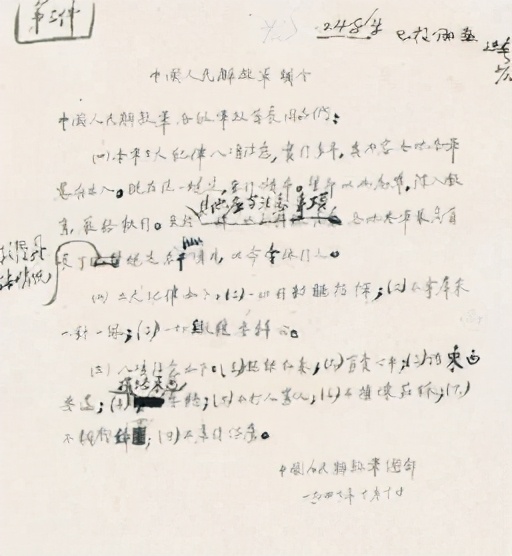 第三件
248/4
已校
中国人民解放军训令
中国人民解放军各级军政首长同志们:
(一)本军三大纪律八项注意,实行多年,其内容各地各军
略有出入。现在统一规定,重行颁布。望即以此为准,深入教
其他应当注意事项
育,严格执行。至于 各地各军最高首
按照具体情况
长 规定若干 以命令施行之。
(二)三大纪律如下:(1)一切行动听指挥;(2)不拿群众
一针一线;(3)一切缴获要归公。
(三)八项注意如下:(1)说话和气;(2)买卖公平;(3)借东西
损坏东西
要还;(4) 要赔;(5)不打人骂人;(6)不损坏庄稼;(7)
不调戏妇女;(8)不虐待俘虏。
中国人民解放军总部
一九四七年十月十日